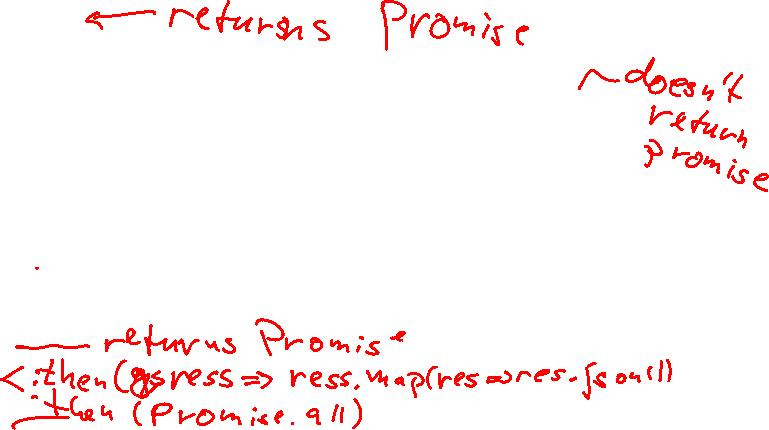 returns Promise
doesn't
return
promise
returns Promise
.then(ress => ress.map(res=>res.json())
.then (Promise.all)